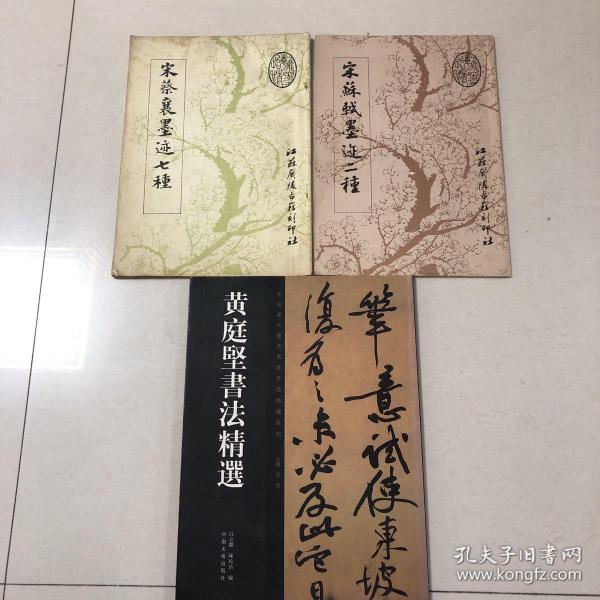 宋蔡襄墨迹七種
江蘇廣陵古籍刻印社
宋蘇軾墨迹二種
江蘇廣陵古籍刻印社
黄庭堅書法精選
河南美術出版社
筆意試使東坡
復爲之未必及此它日
孔夫子旧书网
www.kongfz.com